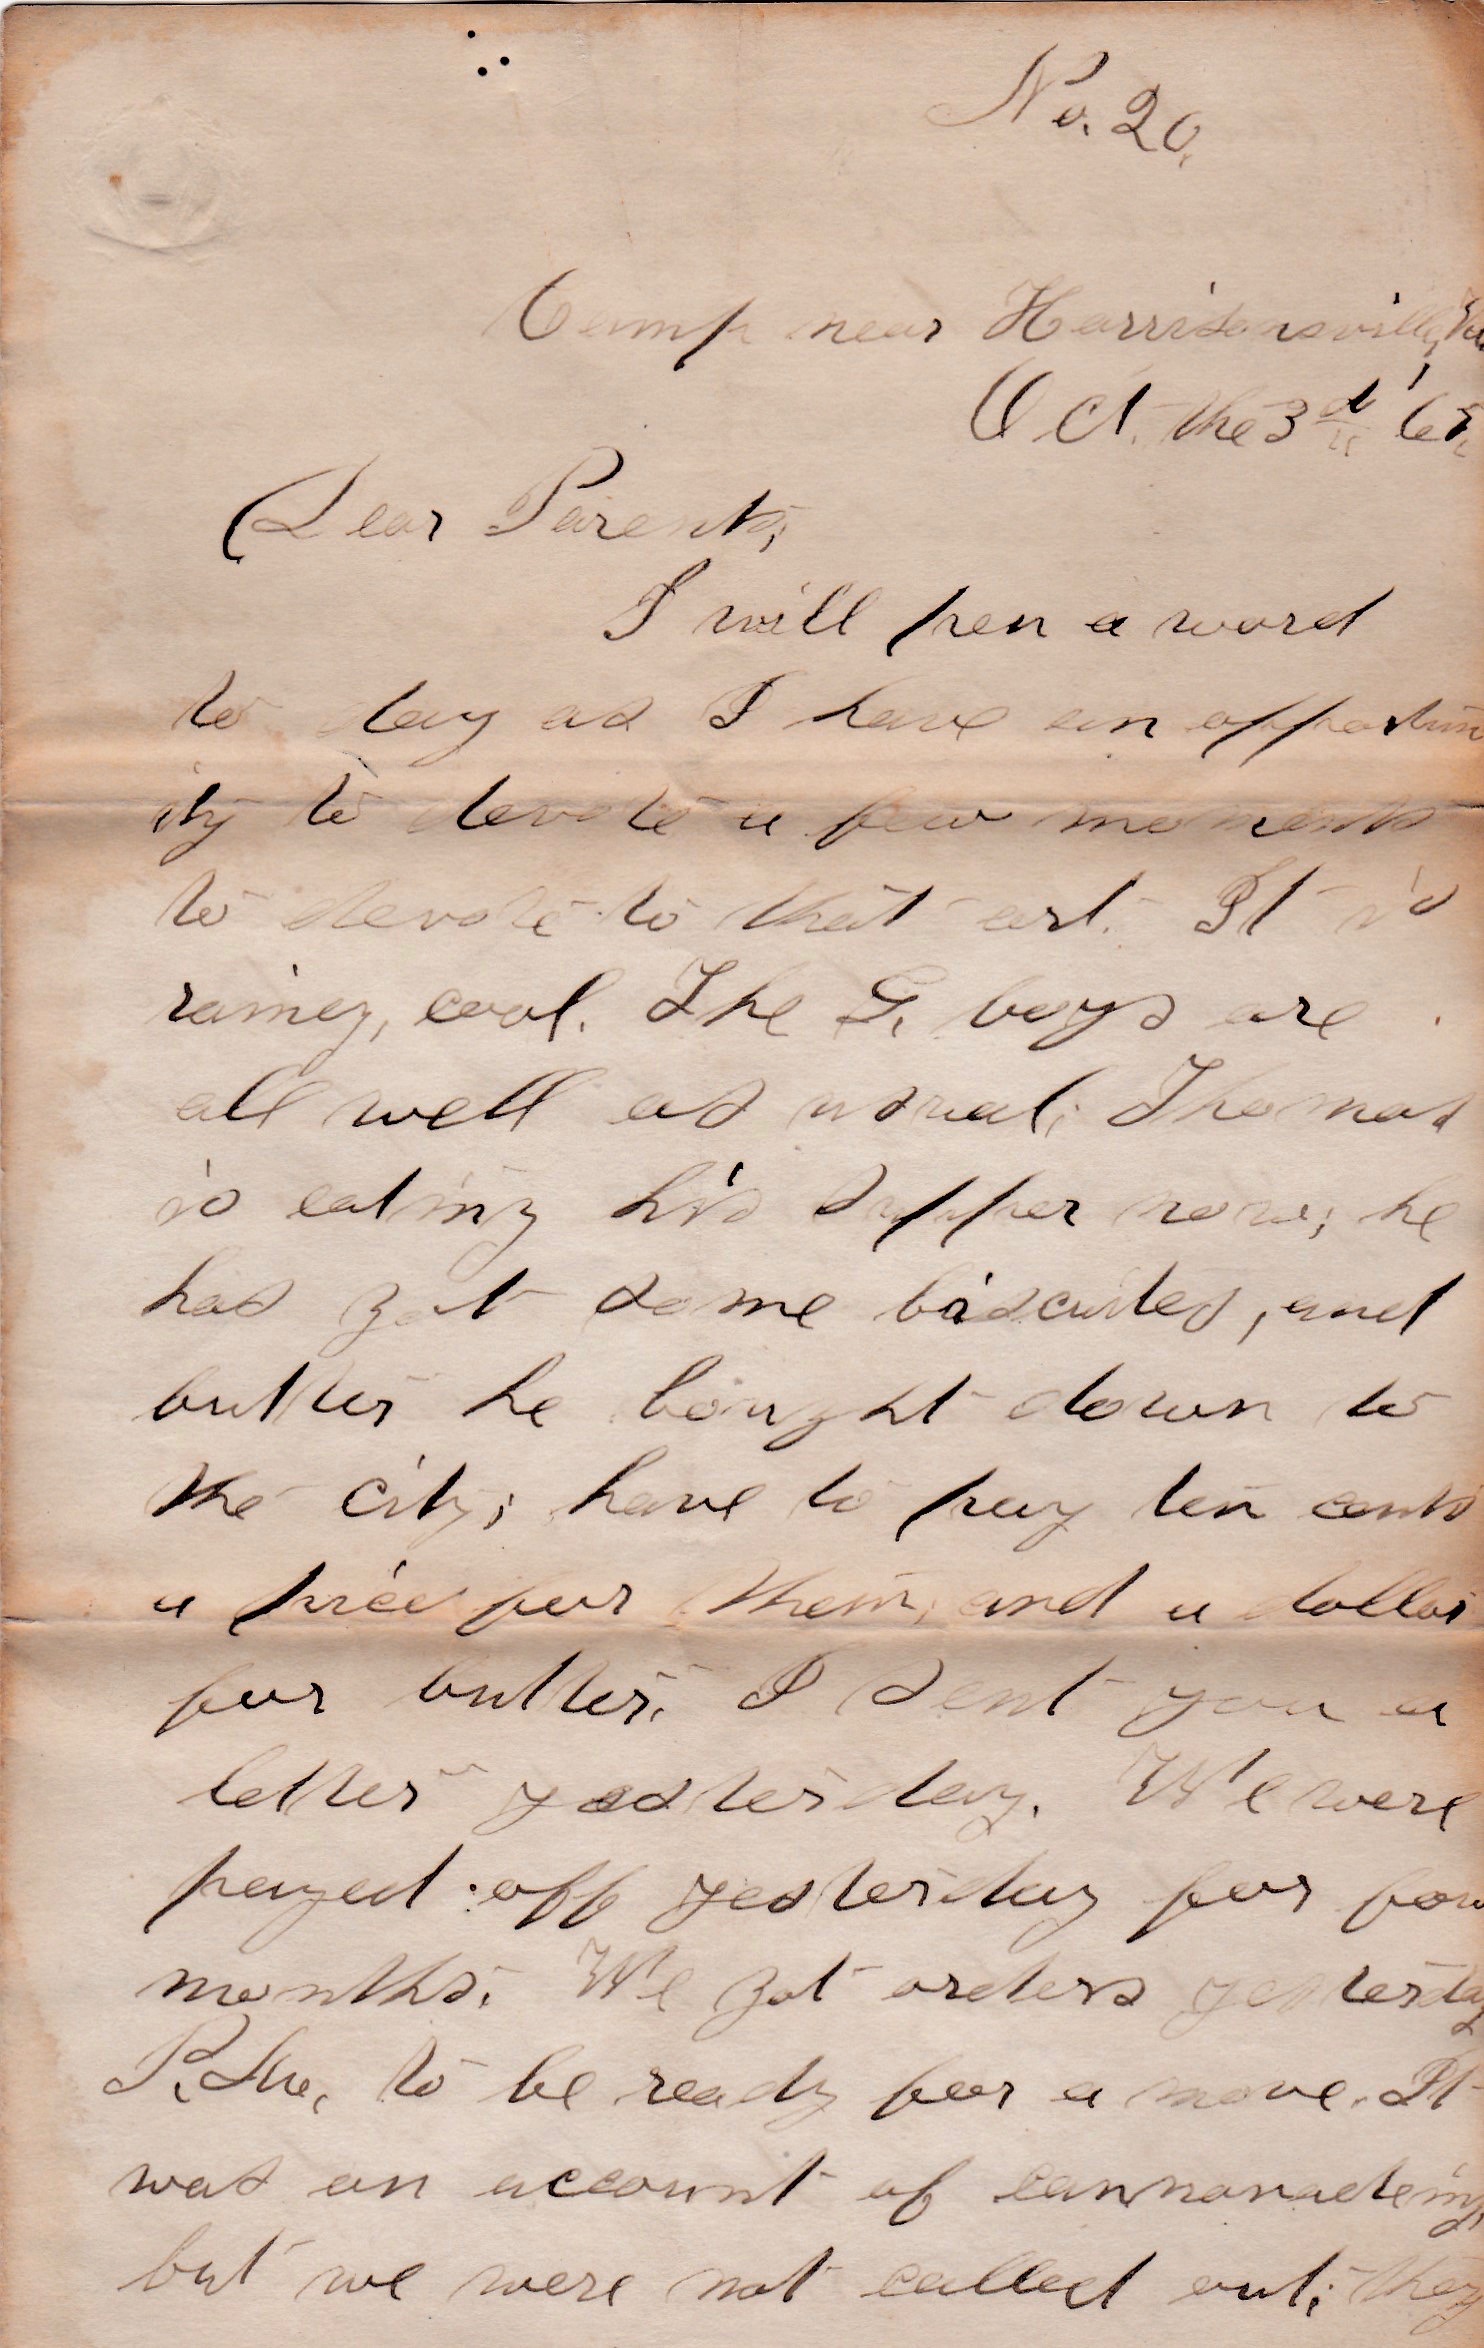 No. 20.
Camp near Harrisonsville, Va.
Oct. the 3d '65.
Dear Parents;
I will pen a word
to day as I have an opportun
ity to devote a few moments
to devote to that art. It is
rainey, cool. The G. boys are
all well as usual; Thomas
is eating his supper now; he
has got some biscuites, and
butter he bought down to
the city; have to pay ten cents
a piece for them, and a dollar
for butter. I sent you a
letter yesterday. We were
payed off yesterday for four
months. We got orders yesterday
P. to be ready for a move. It
was on account of cannonadeing,
but we were not called out; they